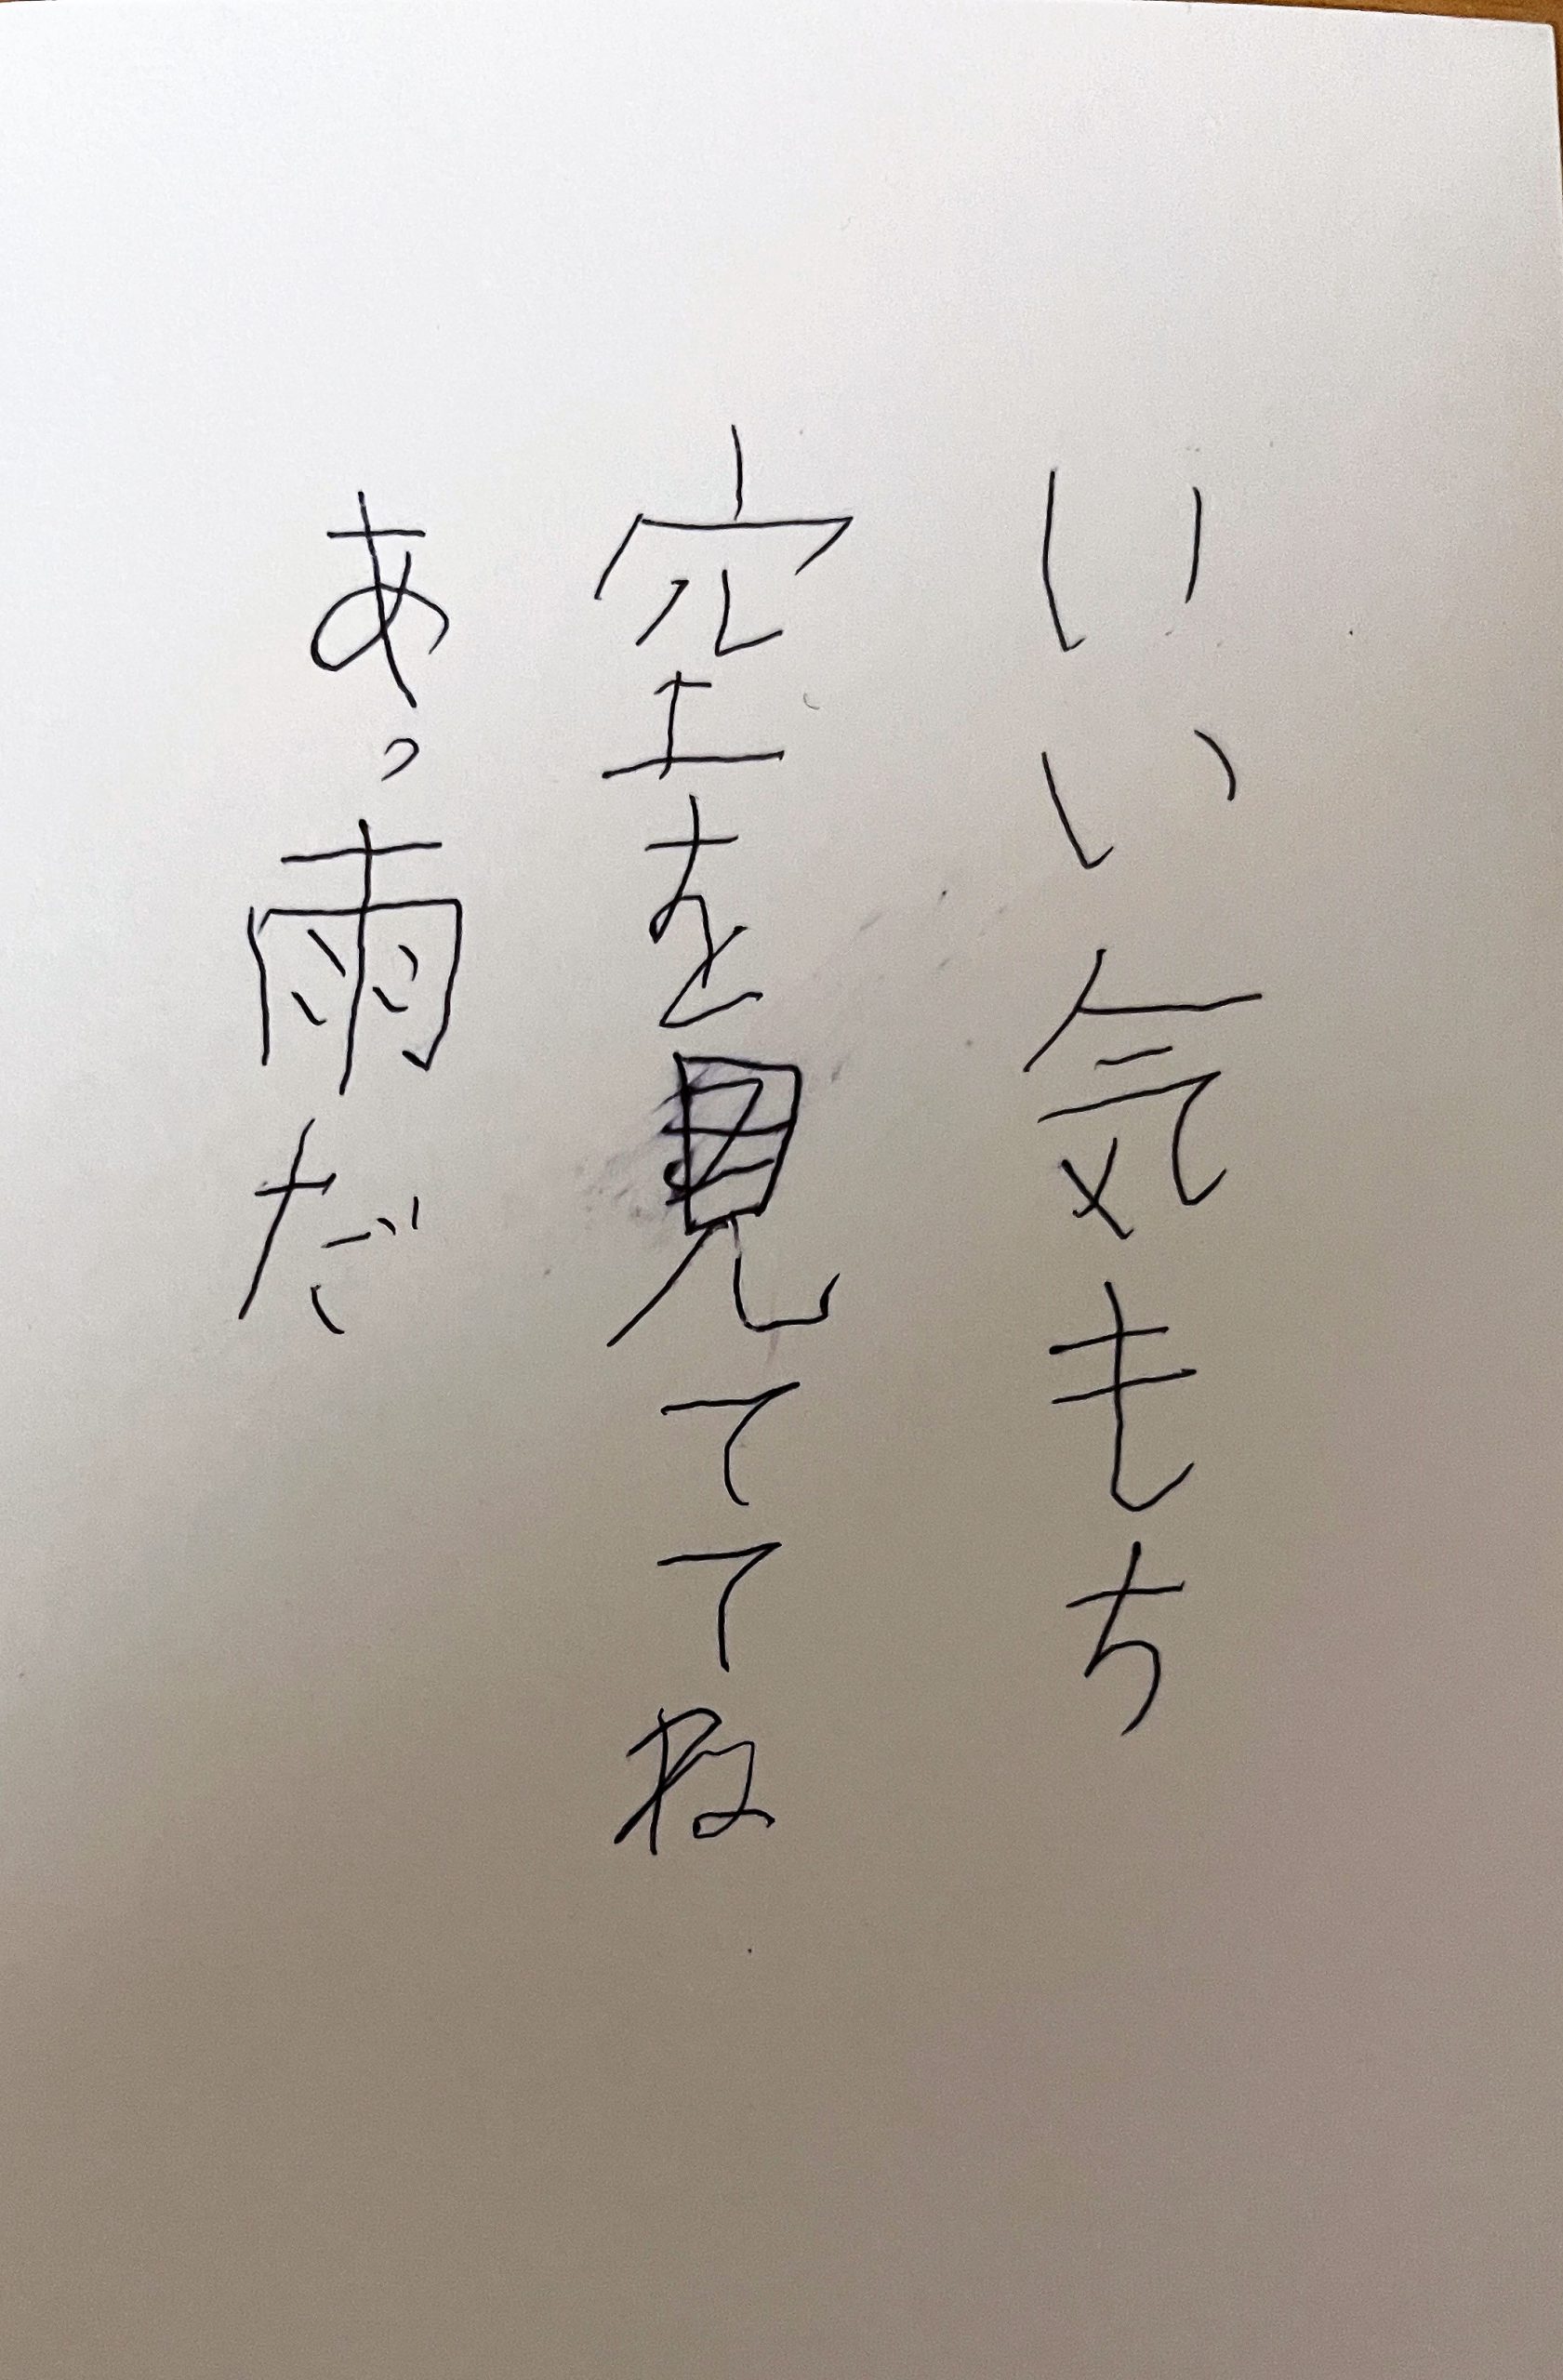 いい気もち
空を見ててね
あっ雨だ